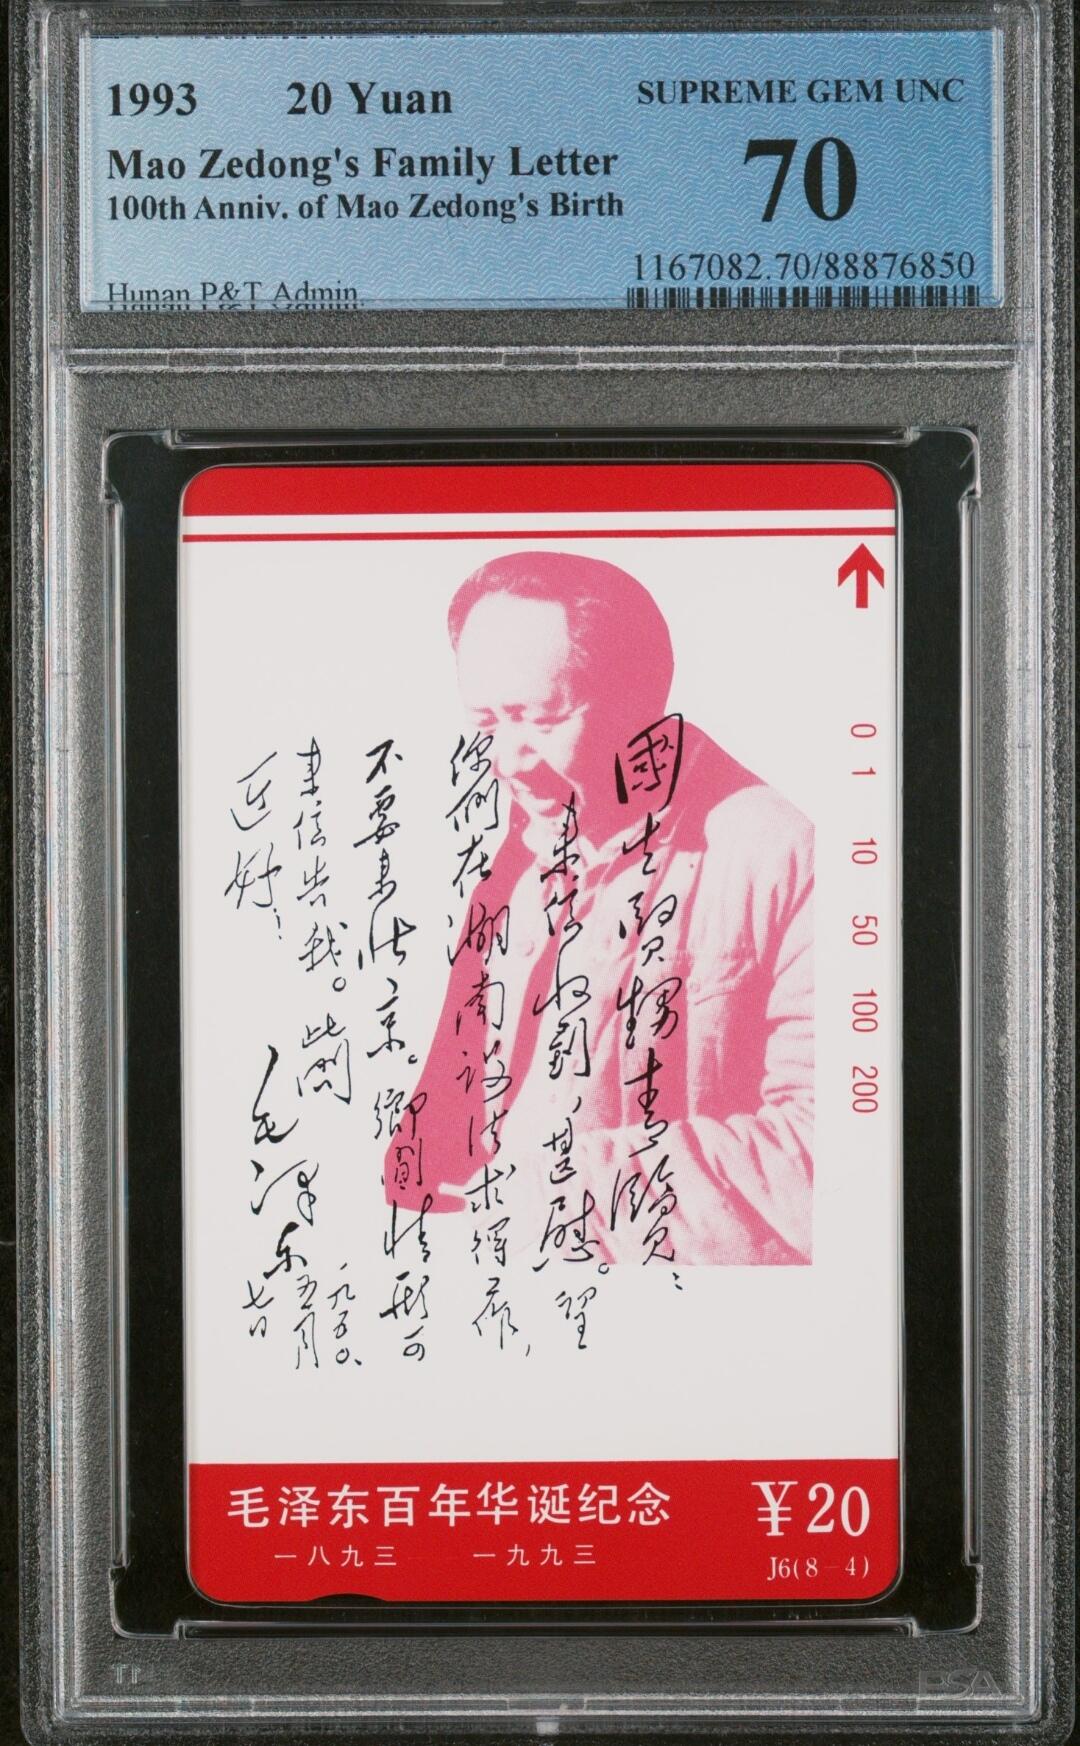 1993 20 Yuan SUPREME GEM UNC
Mao Zedong's Family Letter 70
100th Anniv. of Mao Zedong's Birth
Hunan P&T Admin. 1167082.70/88876850
0 1 10 50 100 200
國生賢甥青覽：
来信收到，甚慰。望
你們在湖南设法求得工作，
不要来北京。鄉間情形可
来信告我。此問
近好！
毛泽东
一九五〇、
五月
七日
毛泽东百年华诞纪念 ￥20
一八九三 一九九三 J6(8-4)
PSA